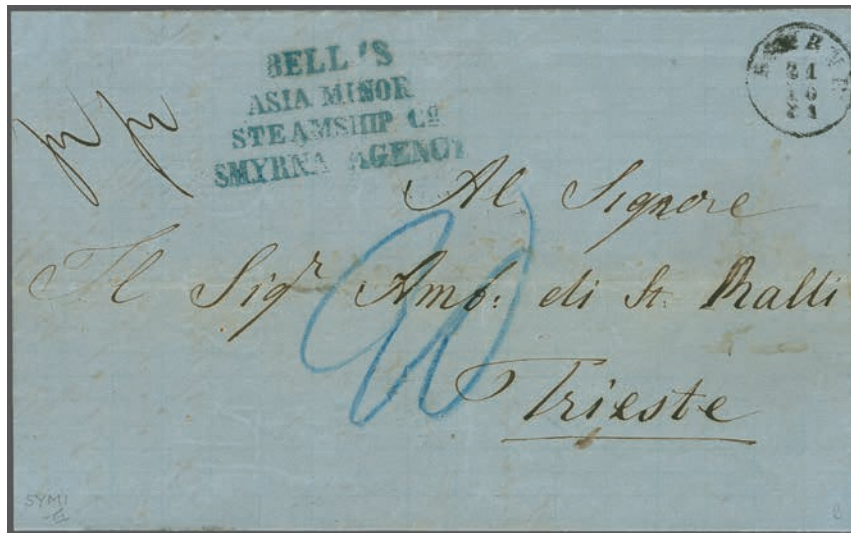 BELL'S
ASIA MINOR
STEAMSHIP Cº
SMYRNA AGENCY
21
Al Signore
Il Sigr Amb: di St. Ralli
Trieste
SYMI